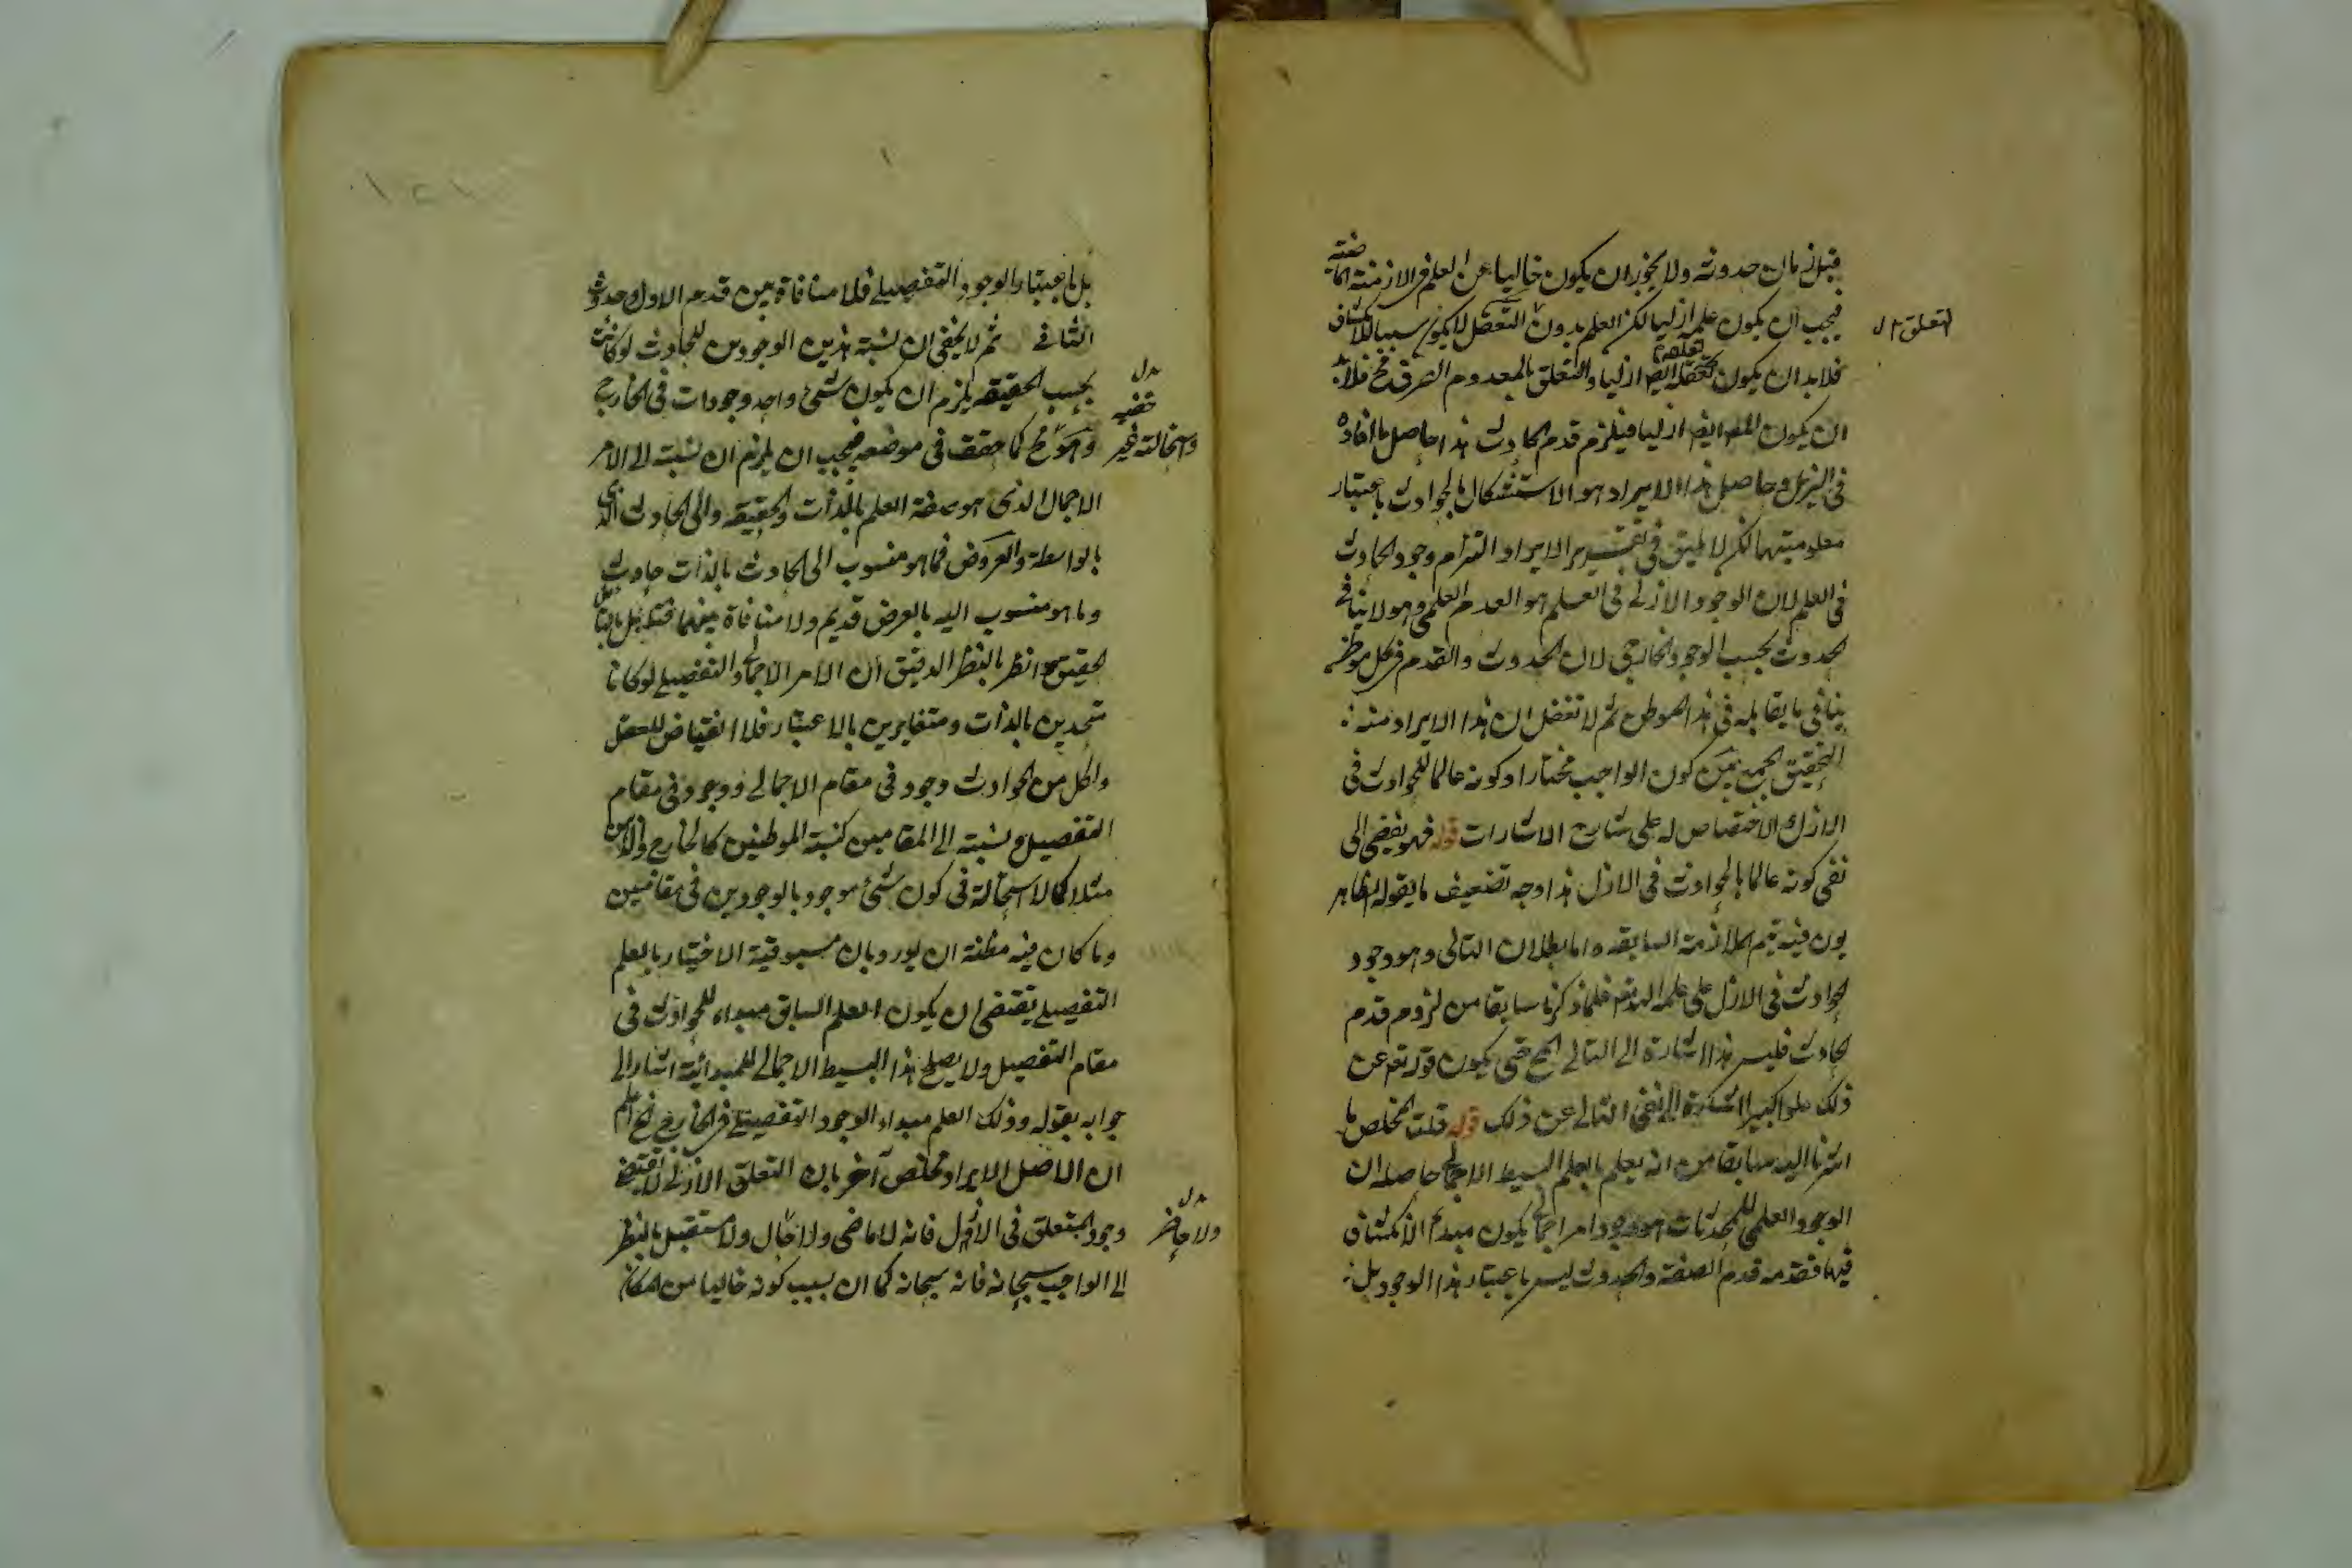 قبل زمان حدوثه ولا يجوز ان يكون خاليا عن العلم فى الازمنة الماضية
فيجب ان يكون علمه ازليا لكن العلم بدون التعقل لا يكون سببا للانكشاف
التعلق بدل
فلابد ان يكون تعقله ايضا ازليا والتعلق بالمعدوم الصرف مح فلابد
ان يكون ايضا ازليا فيلزم قدم الحادث هذا حاصل ما افاده
فى وحاصل هذا الايراد هو الاستشكال بالحوادث باعتبار
معلوميتها لكن لا يليق فى تفسير الايراد التزام وجود الحادث
فى العلم لان الوجود الازلى فى العلم هو القدم العلمى وهو لا ينافى
الحدوث بحسب الوجود الخارجى لان الحدوث والقدم فى كل موطن
ينافى ما يقابله فى هذا الموطن ثم لا تغفل ان هذا الايراد منه
التحقيق الجمع بين كون الواجب مختارا وكونه عالما للحوادث فى
الازل لا اختصاص له على شارح الاشارات قوله فهو يفضى الى
نفى كونه عالما بالحوادث فى الازل هذا وجه تضعيف ما يقوله الظاهر
يون فيه يتم الملازمة السابقة واما بطلان التالى وهو وجود
الحوادث فى الازل على علمه فلما ذكرنا سابقا من لزوم قدم
الحادث فليس هذا اشارة الى التالى حتى يكون قوله تعم عن
ذلك علوا كبيرا اشارة الى نفى التالى عن ذلك قوله قلت المخلص ما
اشرنا اليه سابقا من انه يعلم بالعلم البسيط الاجمالى حاصله ان
الوجود العلمى للمحدثات هو وجود امر اجمالى يكون مبدء الانكشاف
فيها فقدمه قدم الصفة والحدوث ليس باعتبار هذا الوجود بل
بل باعتبار الوجود التفصيلى فلا منافاة بين قدم الاول وحدوث
الثانى ثم لا يخفى ان نسبة هذين الوجودين للحادث لو كانت
بحسب الحقيقة يلزم ان يكون لشئ واحد وجودات فى الخارج
وهو مح كما حقق فى موضعه فيجب ان يلزم ان نسبته الى الامر
بدل
خفيه
واستحالته غير
الاجمال الذى هو صفة العلم بالذات والحقيقة والى الحادث الذى
بالواسطة والعروض فما هو منسوب الى الحادث بالذات حادث
وما هو منسوب اليه بالعرض قديم ولا منافاة بينهما
وانظر بالنظر الدقيق ان الامر الاجمالى والتفصيلى لو كانا
متحدين بالذات ومتغايرين بالاعتبار فلا انقباض للعقل
ولكل من الحوادث وجود فى مقام الاجمالى ووجود فى مقام
التفصيل ونسبته الى المقامين كنسبة الموطنين كالخارج والذهن
مثلا كما لا استحالة فى كون شئ موجود بالوجودين فى مقامين
وما كان فيه مظنة ان يورد بان مسبوقية الاختيار بالعلم
التفصيلى يقتضى ان يكون العلم السابق مبداء للحوادث فى
مقام التفصيل ولا يصلح هذا البسيط الاجمالى للمبدائية اشار الى
جوابه بقوله وذلك العلم مبداء الوجود التفصيلى فى الخارج ثم اعلم
ان لاصل الايراد مخلص آخر بان التعلق الازلى لا يقتضى
وجود المتعلق فى الازل فانه لا ماضى ولا حال ولا مستقبل بالنظر
بدل
ولا حاضر
الى الواجب سبحانه فانه سبحانه كما ان بسبب كونه خاليا من المكان